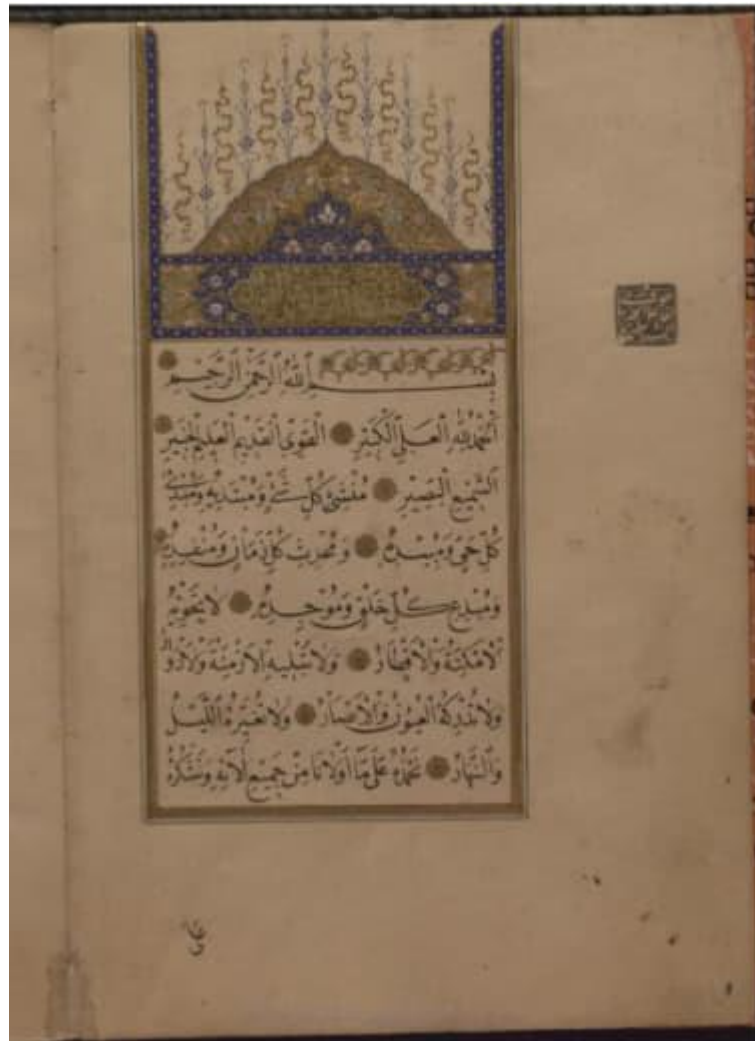 بِسْمِ اللّٰهِ الرَّحْمٰنِ الرَّحِيْمِ
اَلْحَمْدُ لِلّٰهِ الْعَلِىِّ الْكَبِيْرِ الْقَوِىِّ الْقَدِيْمِ الْعَلِيْمِ الْخَبِيْرِ
السَّمِيْعِ الْبَصِيْرِ مُنْشِئِ كُلِّ شَىْءٍ وَمُبْتَدِيْهِ وَمُبْدِئِ
كُلِّ حَىٍّ وَمُبِيْدِهِ وَمُحْدِثِ كُلِّ زَمَانٍ وَمُنْفِدِهِ
وَمُبْدِعِ كُلِّ خَلْقٍ وَمُوْجِدِهِ لَا يَحْوِيْهِ
الْاَمْكِنَةُ وَالْاَقْطَارُ وَلَا تُبْلِيْهِ الْاَزْمِنَةُ
وَلَا تُدْرِكُهُ الْعُيُوْنُ وَالْاَبْصَارُ وَلَا تُغَيِّرُهُ اللَّيْلُ
وَالنَّهَارُ نَحْمَدُهُ عَلٰى مَا اَوْلَانَا مِنْ جَمِيْعِ اٰلَائِهِ وَنَشْكُرُهُ